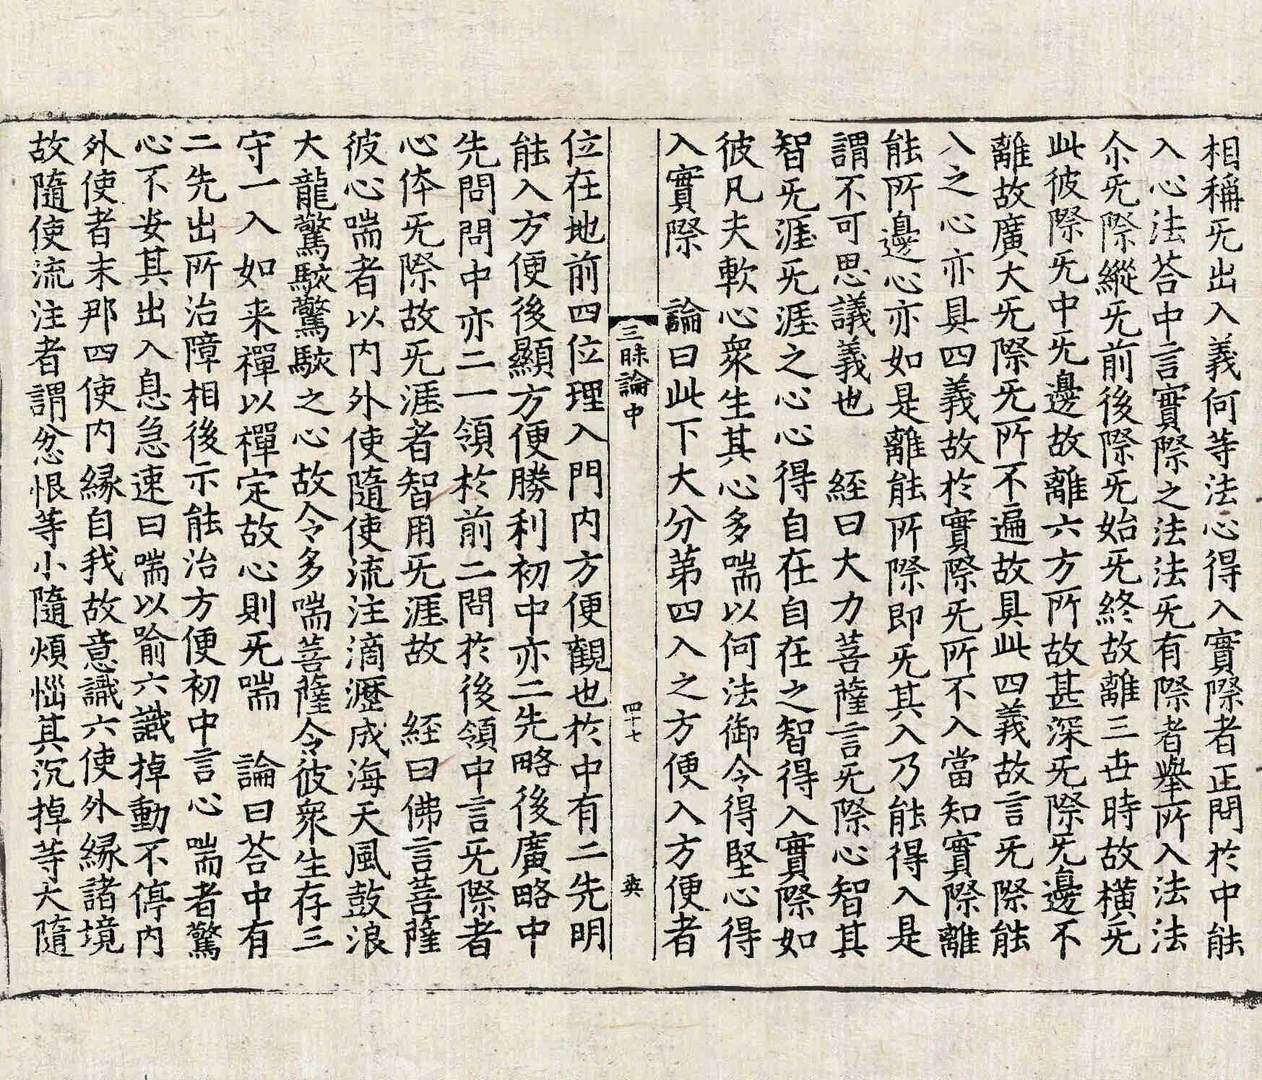 相稱旡出入義何等法心得入實際者正問於中能
入心法荅中言實際之法法旡有際者舉所入法法
尒旡際縱旡前後際旡始旡終故離三世時故橫旡
此彼際旡中旡邊故離六方所故甚深旡際旡邊不
離故廣大旡際旡所不遍故具此四義故言旡際能
入之心亦具四義故於實際旡所不入當知實際離
能所邊心亦如是離能所際即旡其入乃能得入是
謂不可思議義也　經曰大力菩薩言旡際心智其
智旡涯旡涯之心心得自在自在之智得入實際如
彼凡夫軟心衆生其心多喘以何法御令得堅心得
入實際　論曰此下大分第四入之方便入方便者
三昧論中　四十七　英
位在地前四位理入門内方便觀也於中有二先明
能入方便後顯方便勝利初中亦二先略後廣略中
先問問中亦二一領於前二問於後領中言旡際者
心体旡際故旡涯者智用旡涯故　經曰佛言菩薩
彼心喘者以内外使隨使流注滴瀝成海天風鼓浪
大龍驚駭驚駭之心故令多喘菩薩令彼衆生存三
守一入如来禪以禪定故心則旡喘　論曰荅中有
二先出所治障相後示能治方便初中言心喘者驚
心不安其出入息急速曰喘以喻六識掉動不停内
外使者末那四使内緣自我故意識六使外緣諸境
故隨使流注者謂忿恨等小隨煩惱其沉掉等大隨